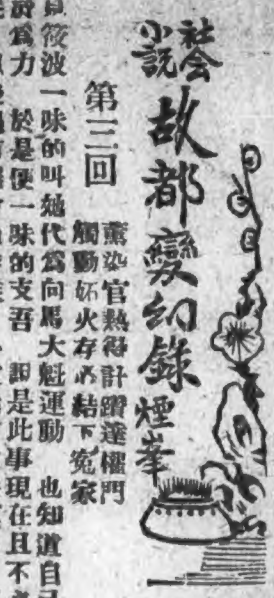 社会
小說
故都變幻錄
煙峯
第三回
薰染官熱得計躋達權門
觸動妬火存心結下冤家
筱波一味的叫她代爲向馬大魁運動　也知道自己
爲力　於是便一味的支吾　說是此事現在且不